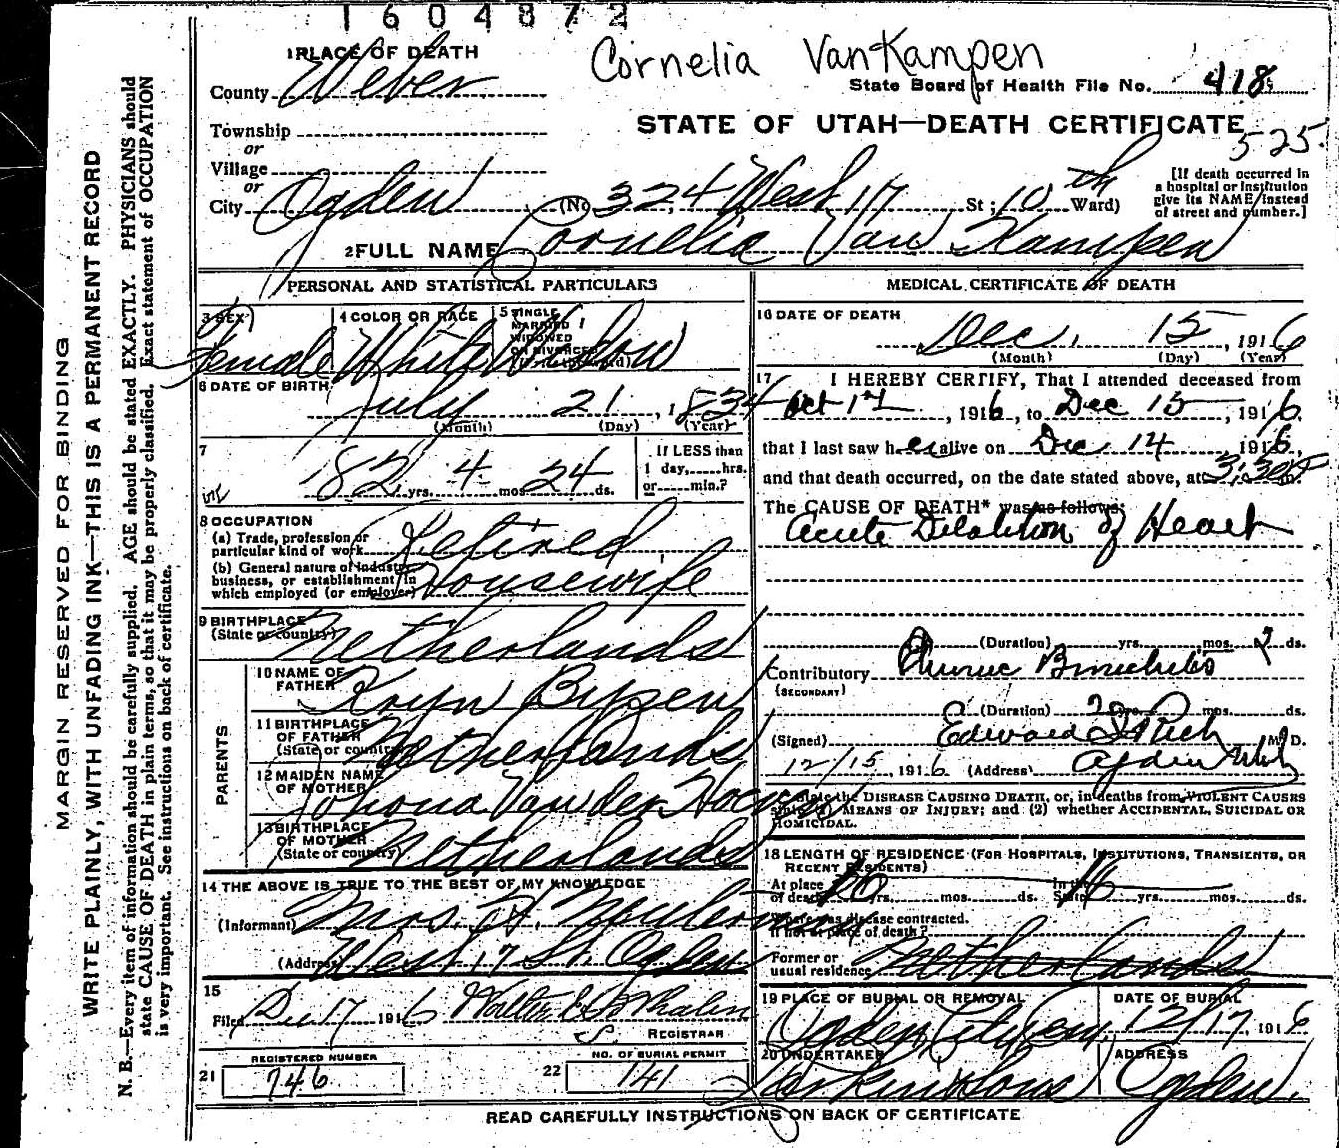 1604872
Cornelia VanKampen
1 PLACE OF DEATH
County Weber
State Board of Health File No. 418
Township
or
Village
or
City Ogden
STATE OF UTAH—DEATH CERTIFICATE
525
(No 324 West 17 St; 10th Ward)
[If death occurred in
a hospital or institution
give its NAME instead
of street and number.]
2 FULL NAME Cornelia Van Kampen
PERSONAL AND STATISTICAL PARTICULARS
3 SEX Female
4 COLOR OR RACE White
5 SINGLE
MARRIED
WIDOWED
OR DIVORCED
Widow
6 DATE OF BIRTH
July 21, 1834
(Month) (Day) (Year)
7
82 yrs. 4 mos. 24 ds.
If LESS than
1 day, hrs.
or min.?
8 OCCUPATION
(a) Trade, profession or
particular kind of work Retired
(b) General nature of industry
business, or establishment in
which employed (or employer) Housewife
9 BIRTHPLACE
(State or country) Netherlands
PARENTS
10 NAME OF
FATHER Kryn
11 BIRTHPLACE
OF FATHER
(State or country) Netherlands
12 MAIDEN NAME
OF MOTHER Johona Van der
13 BIRTHPLACE
OF MOTHER
(State or country) Netherlands
14 THE ABOVE IS TRUE TO THE BEST OF MY KNOWLEDGE
(Informant) Mrs. H.
(Address) West 17 St. Ogden
15
Filed Dec 17 1916
REGISTRAR
REGISTERED NUMBER
21 746
NO. OF BURIAL PERMIT
22 141
MEDICAL CERTIFICATE OF DEATH
16 DATE OF DEATH
Dec. 15, 1916
(Month) (Day) (Year)
17 I HEREBY CERTIFY, That I attended deceased from
Oct 17, 1916, to Dec 15 1916.
that I last saw her alive on Dec 14 1916,
and that death occurred, on the date stated above, at 3:30
The CAUSE OF DEATH* was as follows:
Acute Dilatation of Heart
(Duration) yrs. mos. 2 ds.
Contributory Chronic Bronchitis
(SECONDARY)
(Duration) 2 yrs. mos. ds.
(Signed) Edward I Rich M. D.
12/15, 1916 (Address) Ogden Utah
State the DISEASE CAUSING DEATH, or, in deaths from VIOLENT CAUSES
state (1) MEANS OF INJURY; and (2) whether ACCIDENTAL, SUICIDAL OR
HOMICIDAL.
18 LENGTH OF RESIDENCE (FOR HOSPITALS, INSTITUTIONS, TRANSIENTS, OR
RECENT RESIDENTS)
At place
of death yrs. mos. ds. In the
State 16 yrs. mos. ds.
Where was disease contracted.
If not at place of death?
Former or
usual residence Netherlands
19 PLACE OF BURIAL OR REMOVAL
Ogden City Cem.
DATE OF BURIAL
12/17, 1916
20 UNDERTAKER
ADDRESS
Ogden.
READ CAREFULLY INSTRUCTIONS ON BACK OF CERTIFICATE
MARGIN RESERVED FOR BINDING
WRITE PLAINLY, WITH UNFADING INK—THIS IS A PERMANENT RECORD
N. B.—Every item of information should be carefully supplied. AGE should be stated EXACTLY. PHYSICIANS should
state CAUSE OF DEATH in plain terms, so that it may be properly classified. Exact statement of OCCUPATION
is very important. See instructions on back of certificate.